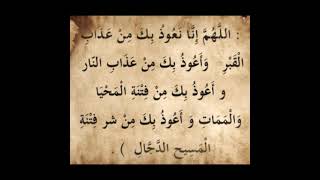 : اللَّهُمَّ إِنَّا نَعُوذُ بِكَ مِنْ عَذَابِ
الْقَبْرِ وَأَعُوذُ بِكَ مِنْ عَذَابِ النَار
و أَعُوذُ بِكَ مِنْ فِتْنَةِ الْمَحْيَا
وَالْمَمَاتِ وَ أَعُوذُ بِكَ مِنْ شر فِتْنَةِ
الْمَسِيحِ الدَّجَّالِ ) .